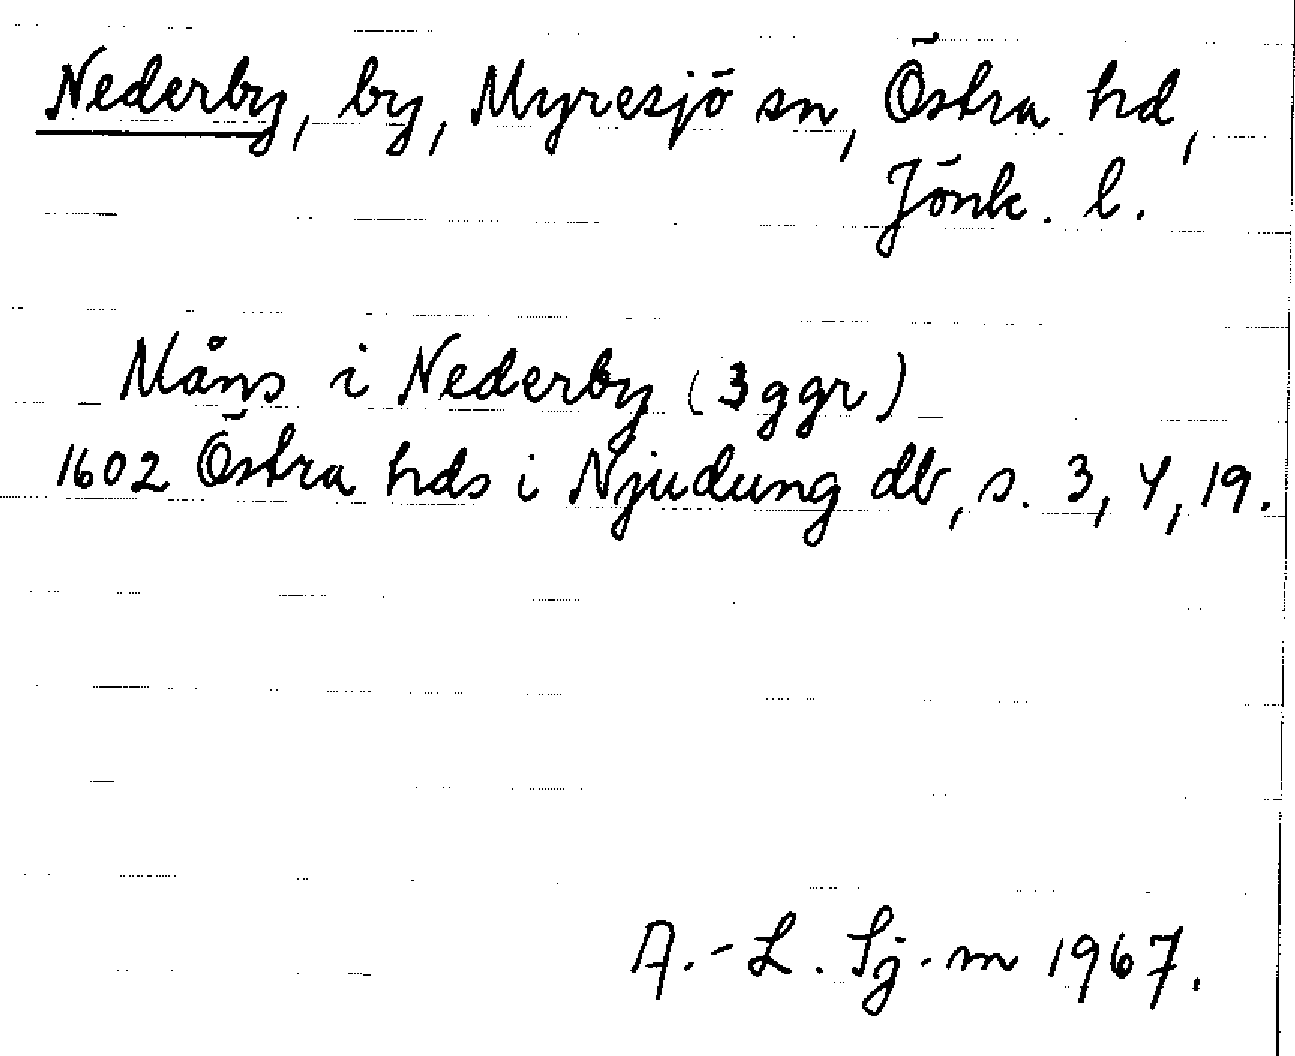 Nederby, by, Myresjö sn, Östra hd,
Jönk. l.
Måns i Nederby (3 ggr)
1602 Östra hds i Njudung db, s. 3, 4, 19.
A.-L. Sj.-m 1967.